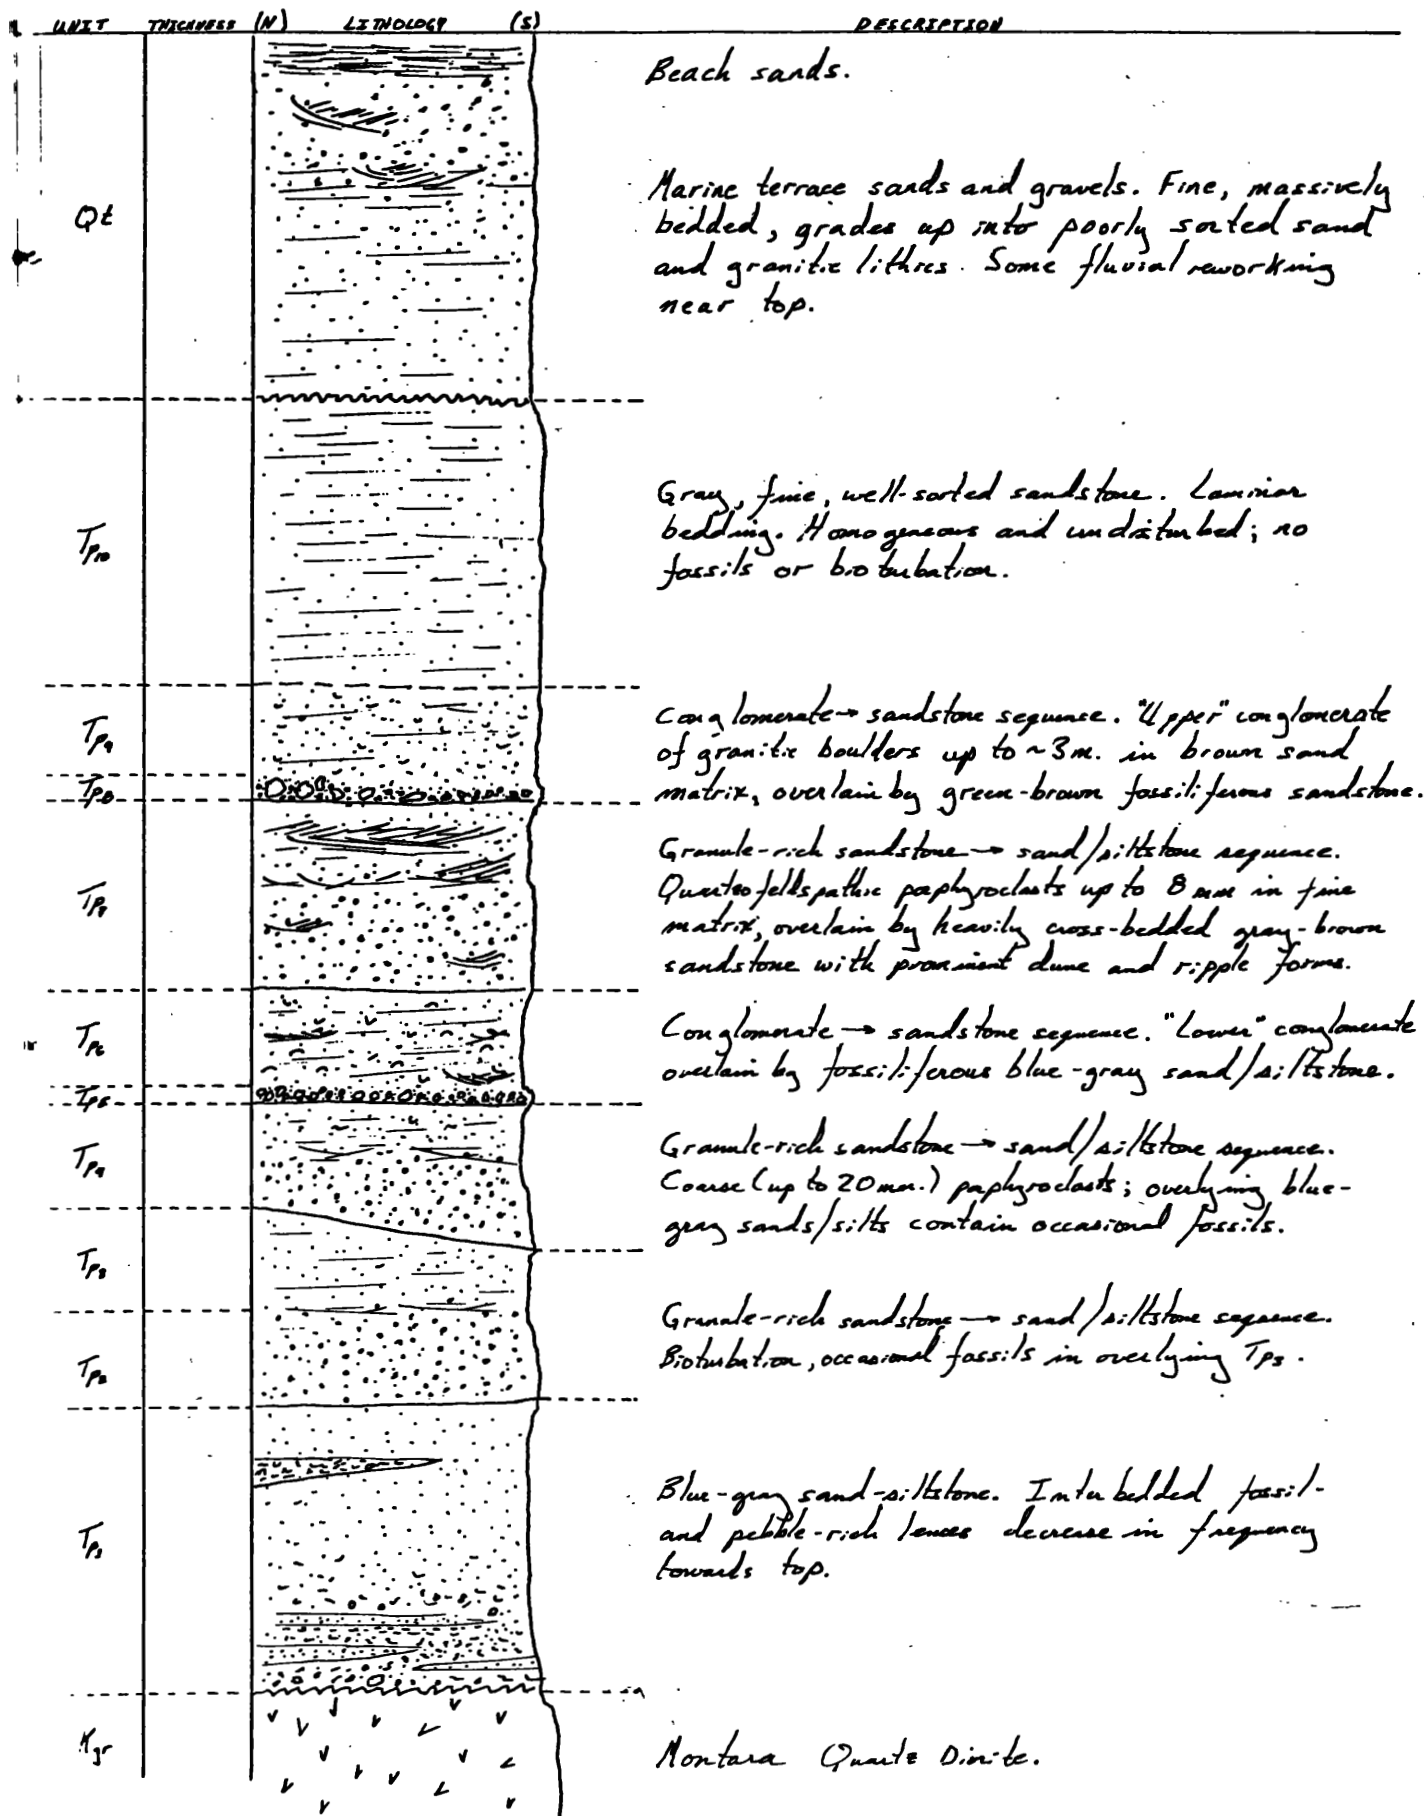 UNIT THICKNESS (N) LITHOLOGY (S) DESCRIPTION
Beach sands.
Qt
Marine terrace sands and gravels. Fine, massively
bedded, grades up into poorly sorted sand
and granitic lithics. Some fluvial reworking
near top.
Tp10
Gray, fine, well-sorted sandstone. Laminar
bedding. Homogeneous and undisturbed; no
fossils or bioturbation.
Tp9
Conglomerate → sandstone sequence. "Upper" conglomerate
of granitic boulders up to ~3m. in brown sand
Tp8
matrix, overlain by green-brown fossiliferous sandstone.
Tp7
Granule-rich sandstone → sand/siltstone sequence.
Quartzofeldspathic porphyroclasts up to 8 mm in fine
matrix, overlain by heavily cross-bedded gray-brown
sandstone with prominent dune and ripple forms.
Tp6
Conglomerate → sandstone sequence. "Lower" conglomerate
overlain by fossiliferous blue-gray sand/siltstone.
Tp5
Tp4
Granule-rich sandstone → sand/siltstone sequence.
Coarse (up to 20mm.) porphyroclasts; overlying blue-
gray sands/silts contain occasional fossils.
Tp3
Tp2
Granule-rich sandstone → sand/siltstone sequence.
Bioturbation, occasional fossils in overlying Tp3.
Tp1
Blue-gray sand-siltstone. Interbedded fossil-
and pebble-rich lenses decrease in frequency
towards top.
Kgr
Montara Quartz Diorite.